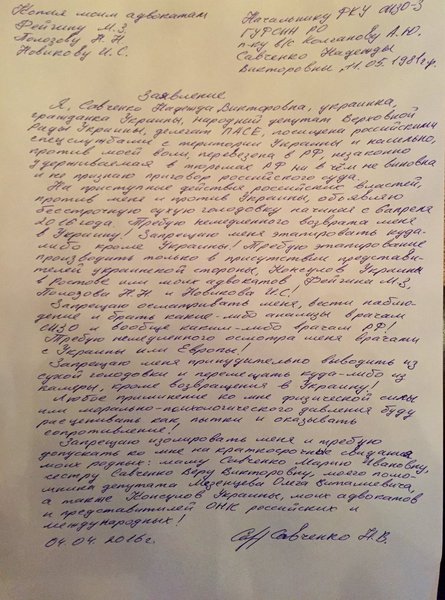 Копия моим адвокатам
Фейгину М.З.
Полозову Н.Н.
Новикову И.С.
Начальнику ФКУ СИЗО-3
ГУФСИН РО
п-ку в/с Колганову А.Ю.
Савченко Надежды
Викторовны, 11.05.1981г.
Заявление
Я, Савченко Надежда Викторовна, украинка,
гражданка Украины, народный депутат Верховной
Рады Украины, делегат ПАСЕ, похищена российскими
спецслужбами с территории Украины и насильно,
против моей воли, перевезена в РФ, незаконно
удерживаемая в тюрьмах РФ ни в чём не виновна
и не признаю приговор российского суда.
На преступные действия российских властей,
против меня и против Украины, объявляю
бессрочную сухую голодовку начиная с 6 апреля
2016 года. Требую немедленного возврата меня
в Украину! Запрещаю меня этапировать куда-
либо кроме Украины! Требую этапирование
производить только в присутствии представи-
телей украинской стороны, Консулов Украины
в Ростове или моих адвокатов, Фейгина М.З.
Полозова Н.Н. и Новикова И.С.
Запрещаю осматривать меня, вести наблю-
дение и брать какие-либо анализы врачам
СИЗО и вообще каким-либо врачам РФ!
Требую немедленного осмотра меня врачами
с Украины или Европы!
Запрещаю меня принудительно выводить из
сухой голодовки и перемещать куда-либо из
камеры, кроме возвращения в Украину!
Любое применение ко мне физической силы
или морально-психологического давления буду
расценивать как пытки и оказывать
сопротивление.
Запрещаю изолировать меня и требую
допускать ко мне на краткосрочные свидания
моих родных: маму Савченко Марию Ивановну,
сестру Савченко Веру Викторовну, моего помо-
щника депутата Мезенцева Олега Виталиевича,
а также Консулов Украины, моих адвокатов
и представителей ОНК российских и
международных!
04.04.2016г.
Савченко Н.В.